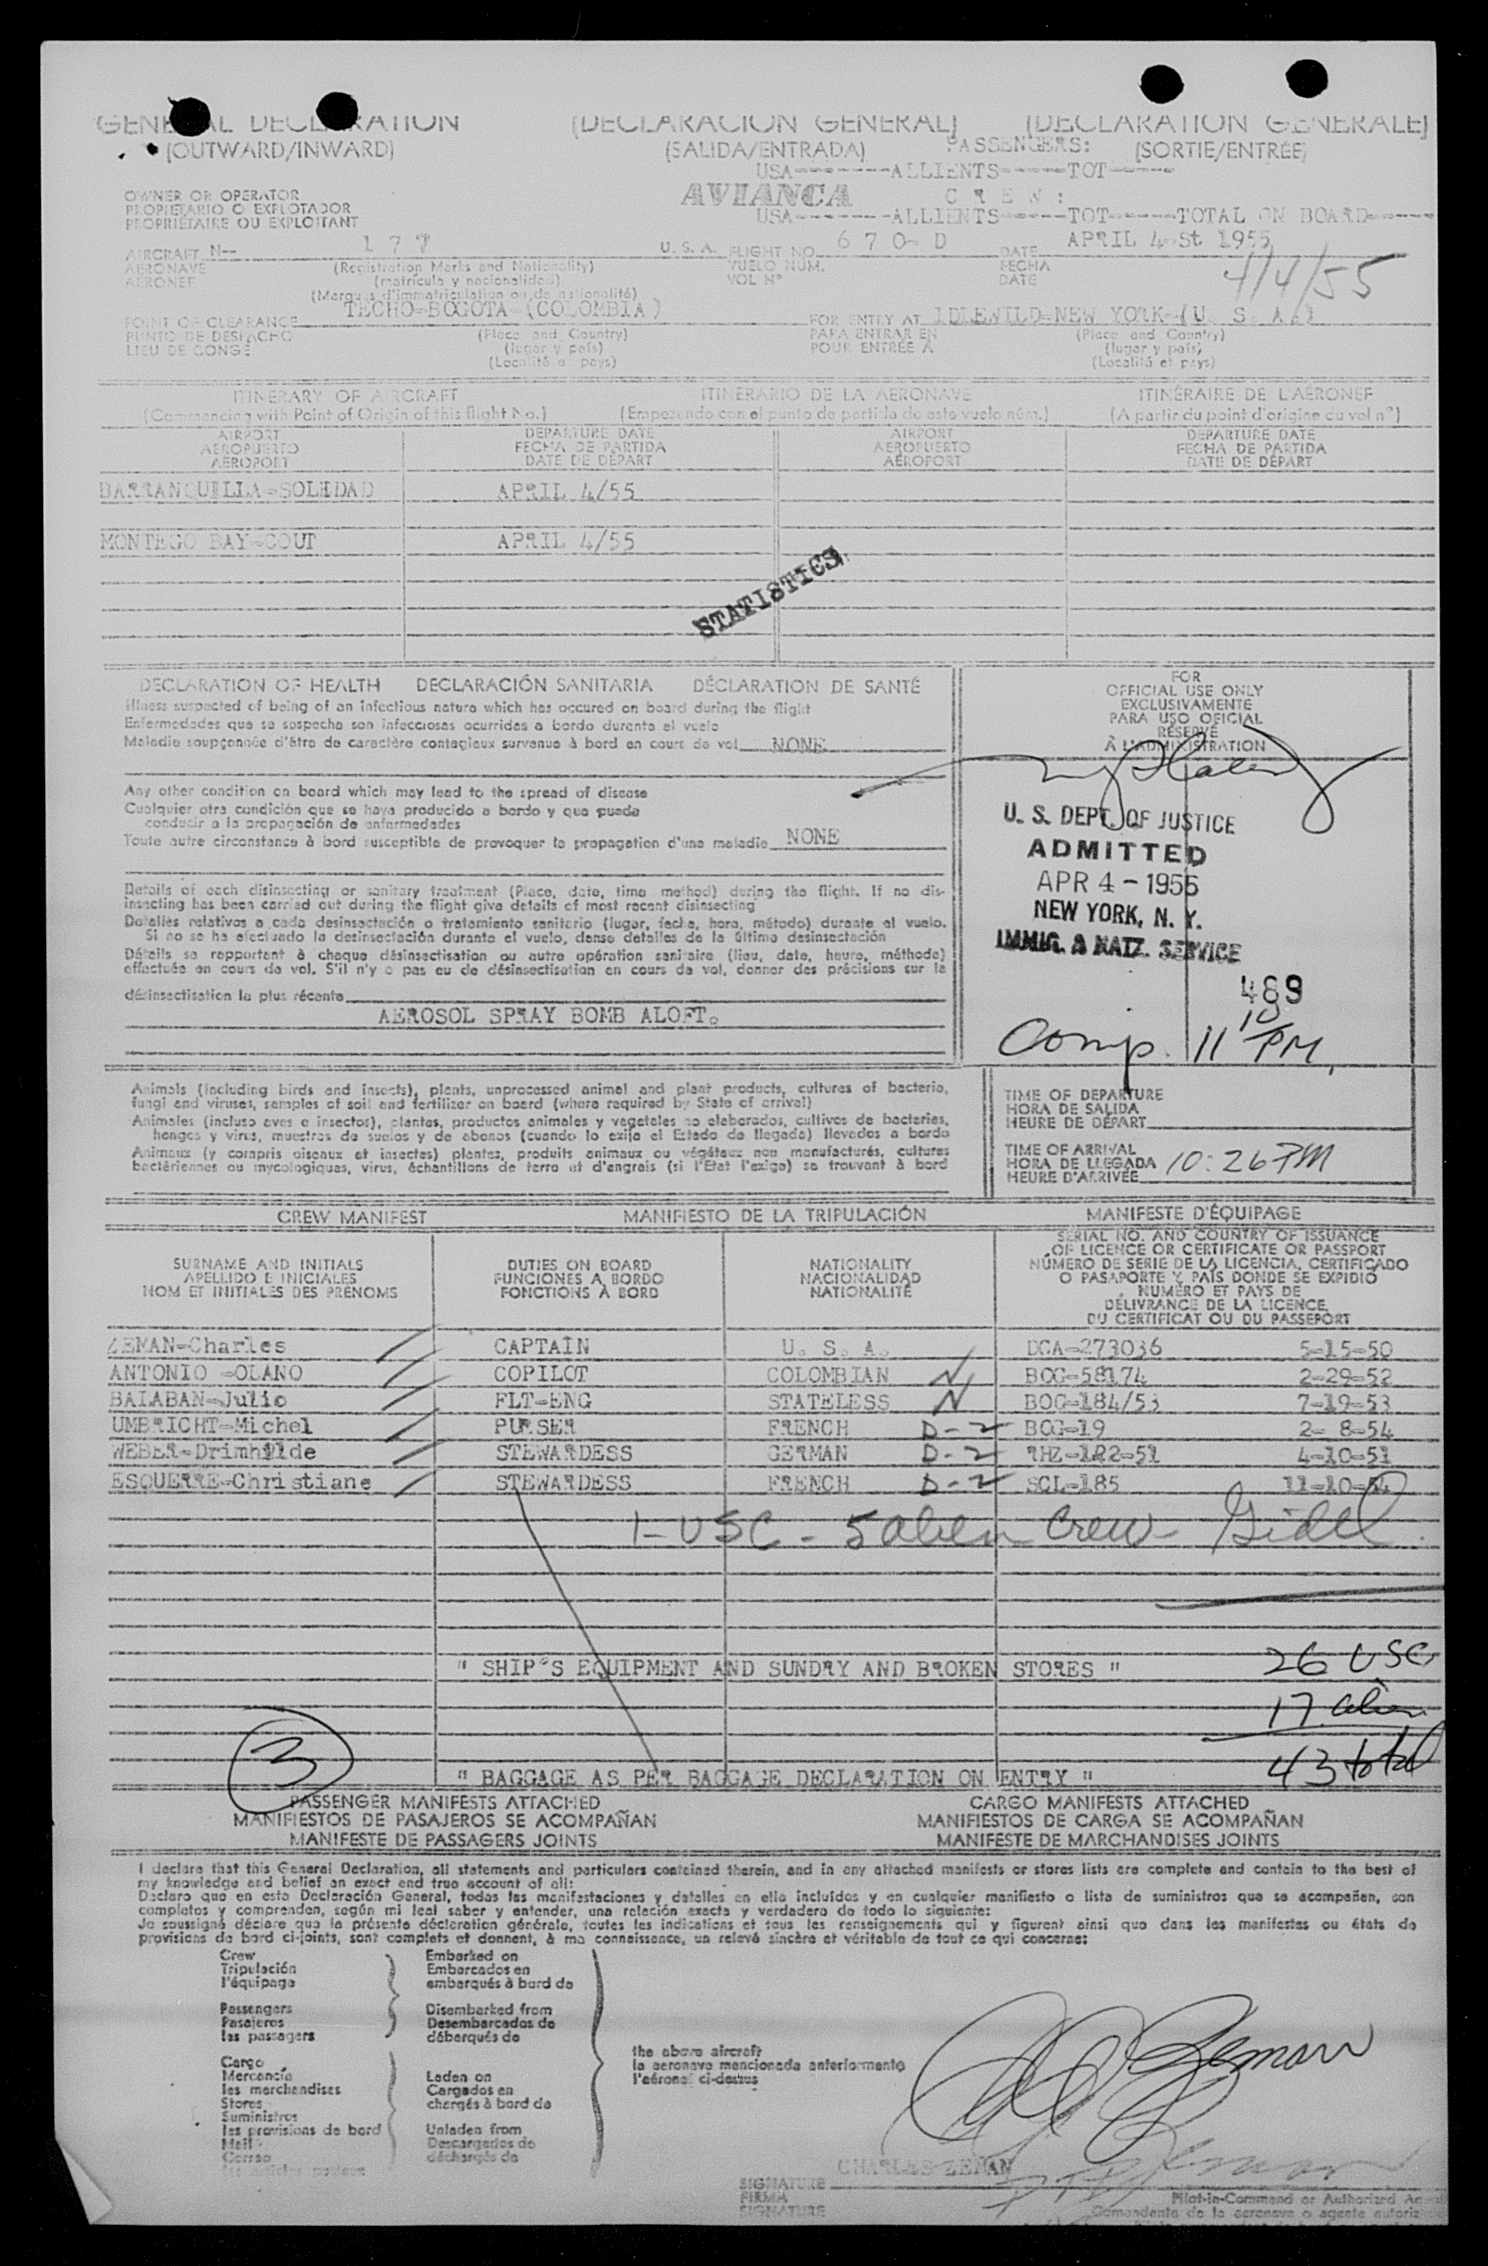 GENERAL DECLARATION (DECLARACIÓN GENERAL) (DÉCLARATION GÉNÉRALE)
(OUTWARD/INWARD) (SALIDA/ENTRADA) PASSENGERS: (SORTIE/ENTRÉE)
USA-------ALLIENTS-----TOT-----
OWNER OR OPERATOR AVIANCA C R E W :
PROPIETARIO O EXPLOTADOR USA-------ALLIENTS-----TOT-----TOTAL ON BOARD-----
PROPRIÉTAIRE OU EXPLOITANT
AIRCRAFT N-- 1 7 7 U.S.A. FLIGHT NO. 6 7 0- D DATE APRIL 4-St 1955
AERONAVE (Registration Marks and Nationality) VUELO NÚM. FECHA
AÉRONEF (matrícula y nacionalidad) VOL Nº DATE 4/4/55
(Marques d'immatriculation ou de nationalité)
POINT OF CLEARANCE TECHO-BOGOTA-(COLOMBIA) FOR ENTRY AT IDLEWILD-NEW YORK-(U. S. A.)
PUNTO DE DESPACHO (Place and Country) PARA ENTRAR EN (Place and Country)
LIEU DE CONGÉ (lugar y país) POUR ENTRÉE À (lugar y país)
(Localité et pays) (Localité et pays)
ITINERARY OF AIRCRAFT ITINERARIO DE LA AERONAVE ITINÉRAIRE DE L'AÉRONEF
(Commencing with Point of Origin of this flight No.) (Empezando con el punto de partida de este vuelo núm.) (A partir du point d'origine du vol nº)
AIRPORT DEPARTURE DATE AIRPORT DEPARTURE DATE
AEROPUERTO FECHA DE PARTIDA AEROPUERTO FECHA DE PARTIDA
AÉROPORT DATE DE DÉPART AÉROPORT DATE DE DÉPART
BARRANQUILLA-SOLEDAD APRIL 4/55
MONTEGO BAY-COUT APRIL 4/55
STATISTICS
DECLARATION OF HEALTH DECLARACIÓN SANITARIA DÉCLARATION DE SANTÉ
Illness suspected of being of an infectious nature which has occured on board during the flight
Enfermedades que se sospecha son infecciosas ocurridas a bordo durante el vuelo
Maladie soupçonnée d'être de caractère contagieux survenue à bord en cours de vol NONE
Any other condition on board which may lead to the spread of disease
Cualquier otra condición que se haya producido a bordo y que pueda
conducir a la propagación de enfermedades
Toute autre circonstance à bord susceptible de provoquer la propagation d'une maladie NONE
Details of each disinsecting or sanitary treatment (Place, date, time method) during the flight. If no dis-
insecting has been carried out during the flight give details of most recent disinsecting
Detalles relativos a cada desinsectación o tratamiento sanitario (lugar, fecha, hora, método) durante el vuelo.
Si no se ha efectuado la desinsectación durante el vuelo, dense detalles de la última desinsectación
Détails se rapportent à chaque désinsectisation ou autre opération sanitaire (lieu, date, heure, méthode)
effectuée en cours de vol. S'il n'y a pas eu de désinsectisation en cours de vol, donner des précisions sur la
désinsectisation la plus récente
AEROSOL SPRAY BOMB ALOFT.
FOR
OFFICIAL USE ONLY
EXCLUSIVAMENTE
PARA USO OFICIAL
RÉSERVÉ
À L'ADMINISTRATION
U. S. DEPT. OF JUSTICE
ADMITTED
APR 4 - 1955
NEW YORK, N. Y.
IMMIG. & NATZ. SERVICE
489
Comp. 11 10 PM
Animals (including birds and insects), plants, unprocessed animal and plant products, cultures of bacteria,
fungi and viruses, samples of soil and fertilizer on board (where required by State of arrival)
Animales (incluso aves e insectos), plantas, productos animales y vegetales no elaborados, cultivos de bacterias,
hongos y virus, muestras de suelos y de abonos (cuando lo exija el Estado de llegada) llevados a bordo
Animaux (y compris oiseaux et insectes) plantes, produits animaux ou végétaux non manufacturés, cultures
bactériennes ou mycologiques, virus, échantillons de terre et d'engrais (si l'Etat l'exige) se trouvant à bord
TIME OF DEPARTURE
HORA DE SALIDA
HEURE DE DÉPART
TIME OF ARRIVAL
HORA DE LLEGADA 10:26 PM
HEURE D'ARRIVÉE
CREW MANIFEST MANIFIESTO DE LA TRIPULACIÓN MANIFESTE D'ÉQUIPAGE
SURNAME AND INITIALS DUTIES ON BOARD NATIONALITY SERIAL NO. AND COUNTRY OF ISSUANCE
APELLIDO E INICIALES FUNCIONES A BORDO NACIONALIDAD OF LICENCE OR CERTIFICATE OR PASSPORT
NOM ET INITIALES DES PRÉNOMS FONCTIONS À BORD NATIONALITÉ NÚMERO DE SERIE DE LA LICENCIA, CERTIFICADO
O PASAPORTE Y PAÍS DONDE SE EXPIDIÓ
NUMÉRO ET PAYS DE
DÉLIVRANCE DE LA LICENCE,
DU CERTIFICAT OU DU PASSEPORT
ZEMAN-Charles CAPTAIN U. S. A. DCA-273036 5-15-50
ANTONIO -OLANO COPILOT COLOMBIAN N BOG-58174 2-29-52
BALABAN-Julio FLT-ENG STATELESS N BOG-184/53 7-19-53
UMBRICHT-Michel PURSER FRENCH D-2 BOG-19 2- 8-54
WEBER-Drimhilde STEWARDESS GERMAN D-2 RHZ-122-51 4-10-51
ESQUERRE-Christiane STEWARDESS FRENCH D-2 SCL-185 11-10-54
1-USC - 5 alien Crew
" SHIP'S EQUIPMENT AND SUNDRY AND BROKEN STORES " 26 USC
17 alien
43 total
3
" BAGGAGE AS PER BAGGAGE DECLARATION ON ENTRY "
PASSENGER MANIFESTS ATTACHED CARGO MANIFESTS ATTACHED
MANIFIESTOS DE PASAJEROS SE ACOMPAÑAN MANIFIESTOS DE CARGA SE ACOMPAÑAN
MANIFESTE DE PASSAGERS JOINTS MANIFESTE DE MARCHANDISES JOINTS
I declare that this General Declaration, all statements and particulars contained therein, and in any attached manifests or stores lists are complete and contain to the best of
my knowledge and belief an exact and true account of all:
Declaro que en esta Declaración General, todas las manifestaciones y detalles en ella incluidos y en cualquier manifiesto o lista de suministros que se acompañen, son
completos y comprenden, según mi leal saber y entender, una relación exacta y verdadera de todo lo siguiente:
Je soussigné déclare que la présente déclaration générale, toutes les indications et tous les renseignements qui y figurent ainsi que dans les manifestes ou états de
provisions de bord ci-joints, sont complets et donnent, à ma connaissance, un relevé sincère et véritable de tout ce qui concerne:
Crew Embarked on
Tripulación Embarcados en
l'équipage embarqués à bord de
Passengers Disembarked from
Pasajeros Desembarcados de
les passagers débarqués de
the above aircraft
la aeronave mencionada anteriormente
l'aéronef ci-dessus
Cargo
Mercancía Laden on
les marchandises Cargados en
Stores chargés à bord de
Suministros
les provisions de bord Unladen from
Mail Descargados de
Correo déchargés de
les articles postaux
C Zeman
CHARLES ZEMAN
SIGNATURE
FIRMA Pilot-in-Command or Authorized
SIGNATURE Comandante de la aeronave o agente